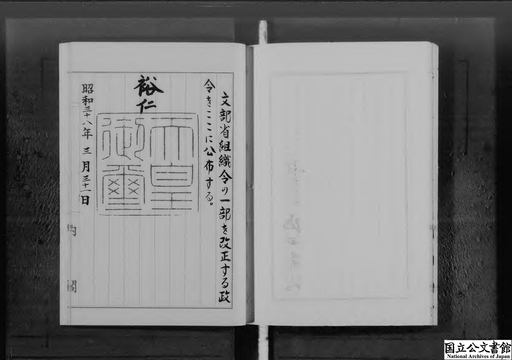 文部省組織令の一部を改正する政
令をここに公布する。
裕仁
天皇
御璽
昭和三十八年三月三十一日
内閣
国立公文書館
National Archives of Japan